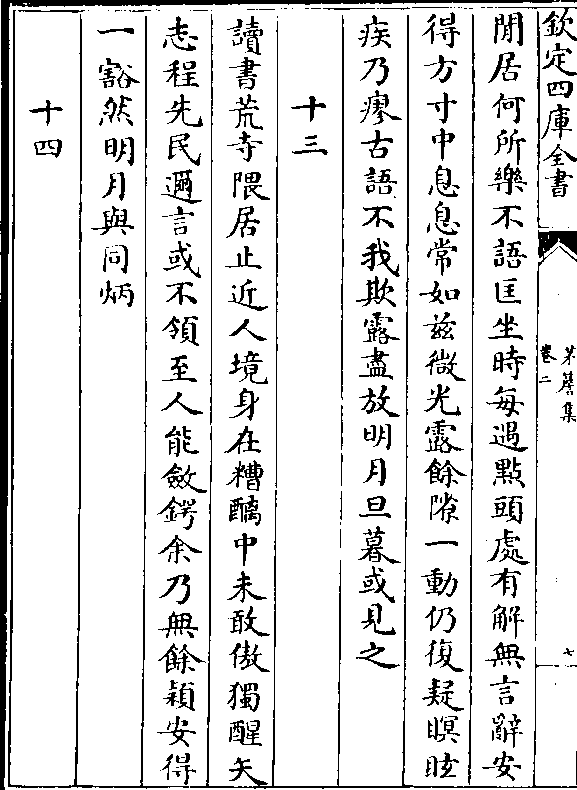 欽定四庫全書
茅簷集
卷二
七
閒居何所樂不語匡坐時每遇點頭處有解無言辭安
得方寸中息息常如兹微光露餘隙一動仍復疑瞑眩
疾乃瘳古語不我欺露盡放明月旦暮或見之
十三
讀書荒寺隈居止近人境身在糟醨中未敢傲獨醒矢
志程先民邇言或不領至人能斂鍔余乃無餘穎安得
一豁然明月與同炳
十四